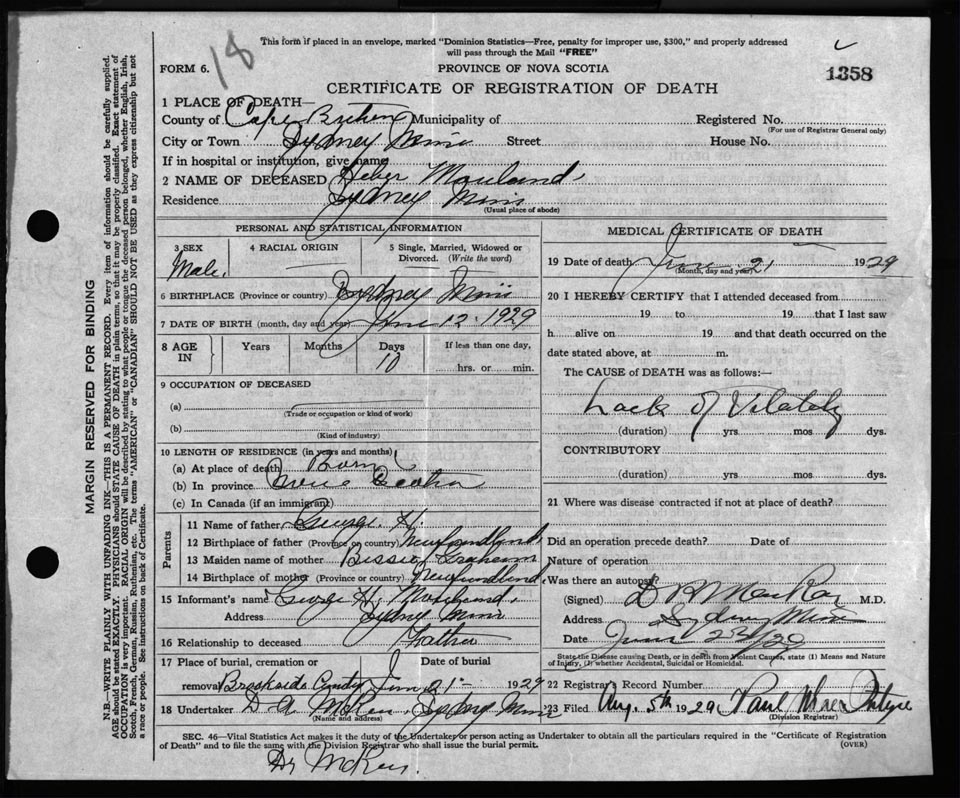 18
This form if placed in an envelope, marked "Dominion Statistics—Free, penalty for improper use, $300," and properly addressed
will pass through the Mail "FREE"
FORM 6.
PROVINCE OF NOVA SCOTIA
1358
CERTIFICATE OF REGISTRATION OF DEATH
1 PLACE OF DEATH—
County of Cape Breton Municipality of Registered No.
(For use of Registrar General only)
City or Town Sydney Mines Street House No.
If in hospital or institution, give name
2 NAME OF DECEASED Heber
Residence Sydney Mines
(Usual place of abode)
PERSONAL AND STATISTICAL INFORMATION
3 SEX 4 RACIAL ORIGIN 5 Single, Married, Widowed or
Divorced. (Write the word)
Male.
6 BIRTHPLACE (Province or country) Sydney Mines
7 DATE OF BIRTH (month, day and year) June 12. 1929
8 AGE IN Years Months Days If less than one day,
10 hrs. or min.
9 OCCUPATION OF DECEASED
(a)
(Trade or occupation or kind of work)
(b)
(Kind of industry)
10 LENGTH OF RESIDENCE (in years and months)
(a) At place of death Born
(b) In province Nova Scotia
(c) In Canada (if an immigrant)
Parents
11 Name of father George H.
12 Birthplace of father (Province or country) Newfoundland.
13 Maiden name of mother Bessie Graham
14 Birthplace of mother (Province or country) Newfoundland.
15 Informant's name George H.
Address Sydney Mines
16 Relationship to deceased Father
17 Place of burial, cremation or Date of burial
removal Brookside June 21st 1929
18 Undertaker D A McRae, Sydney Mines
(Name and address)
MEDICAL CERTIFICATE OF DEATH
19 Date of death June 21 1929
(Month, day and year)
20 I HEREBY CERTIFY that I attended deceased from
19 to 19 that I last saw
h alive on 19 and that death occurred on the
date stated above, at m.
The CAUSE of DEATH was as follows:—
Lack of Vitality
(duration) yrs mos dys.
CONTRIBUTORY
(duration) yrs mos dys.
21 Where was disease contracted if not at place of death?
Did an operation precede death? Date of
Nature of operation
Was there an autopsy?
(Signed) M.D.
Address Sydney Mines
Date June
State the Disease causing Death, or in death from Violent Causes, state (1) Means and Nature
of Injury, (2) whether Accidental, Suicidal or Homicidal.
22 Registrar's Record Number
23 Filed Aug. 5th 1929 Paul MacIntyre
(Division Registrar)
SEC. 46—Vital Statistics Act makes it the duty of the Undertaker or person acting as Undertaker to obtain all the particulars required in the "Certificate of Registration
of Death" and to file the same with the Division Registrar who shall issue the burial permit.
(OVER)
MARGIN RESERVED FOR BINDING
N.B.—WRITE PLAINLY WITH UNFADING INK—THIS IS A PERMANENT RECORD. Every item of information should be carefully supplied.
AGE should be stated EXACTLY. PHYSICIANS should STATE CAUSE OF DEATH in plain terms, so that it may be properly classified. Exact statement of
OCCUPATION is very important. RACIAL ORIGIN will be described by stating to what people or tongue the deceased person belonged, whether English, Irish,
Scotch, French, German, Russian, Ruthenian, etc. The terms "AMERICAN" or "CANADIAN" SHOULD NOT BE USED as they express citizenship but not
a race or people. See instructions on back of Certificate.